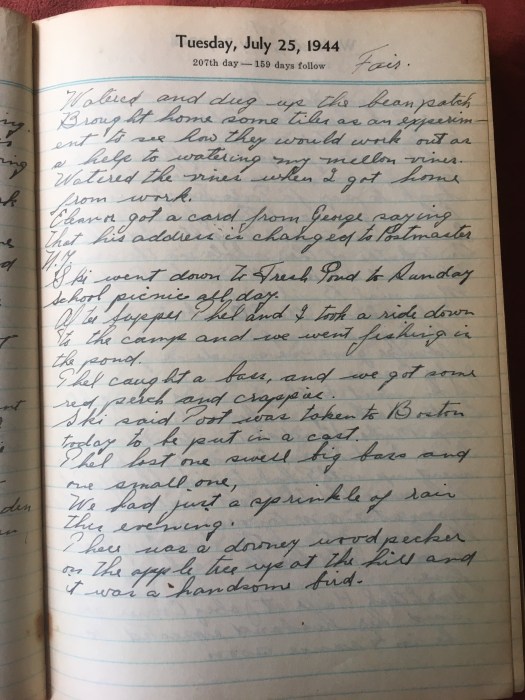 Tuesday, July 25, 1944
207th day — 159 days follow
Fair.
Watered and dug up the bean patch
Brought home some tiles as an experim-
ent to see how they would work out as
a help to watering my mellon vines.
Watered the vines when I got home
from work.
Eleanor got a card from George saying
that his address is changed to Postmaster
N.Y.
Ski went down to Fresh Pond to Sunday
School picnic all day.
After supper Phel and I took a ride down
to the camp and we went fishing in
the pond.
Phel caught a bass, and we got some
red perch and crappie.
Ski said Poot was taken to Boston
today to be put in a cast.
Phel lost one swell big bass and
one small one,
We had just a sprinkle of rain
this evening.
There was a downey woodpecker
on the apple tree up at the hill and
it was a handsome bird.